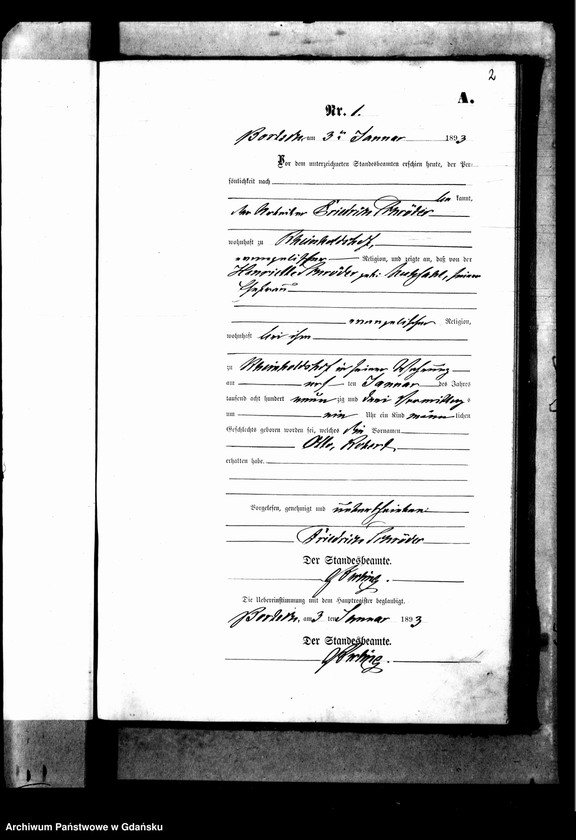 2
A.
Nr. 1.
am 3ten Januar 1893
Vor dem unterzeichneten Standesbeamten erschien heute, der Per-
sönlichkeit nach
kannt,
der Arbeiter Schröder
wohnhaft zu
evangelischer Religion, und zeigte an, daß von der
Schröder geb. seiner
Ehefrau
evangelischer Religion,
wohnhaft bei ihm
zu in seiner Wohnung
am ten Januar des Jahres
tausend acht hundert neun zig und drei Vormittags
um ein Uhr ein Kind männlichen
Geschlechts geboren worden sei, welches die Vornamen
Otto, Robert
erhalten habe.
Vorgelesen, genehmigt und unterschrieben
Schröder
Der Standesbeamte.
Die Uebereinstimmung mit dem Hauptregister beglaubigt.
am 3 ten Januar 1893
Der Standesbeamte.
Archiwum Państwowe w Gdańsku